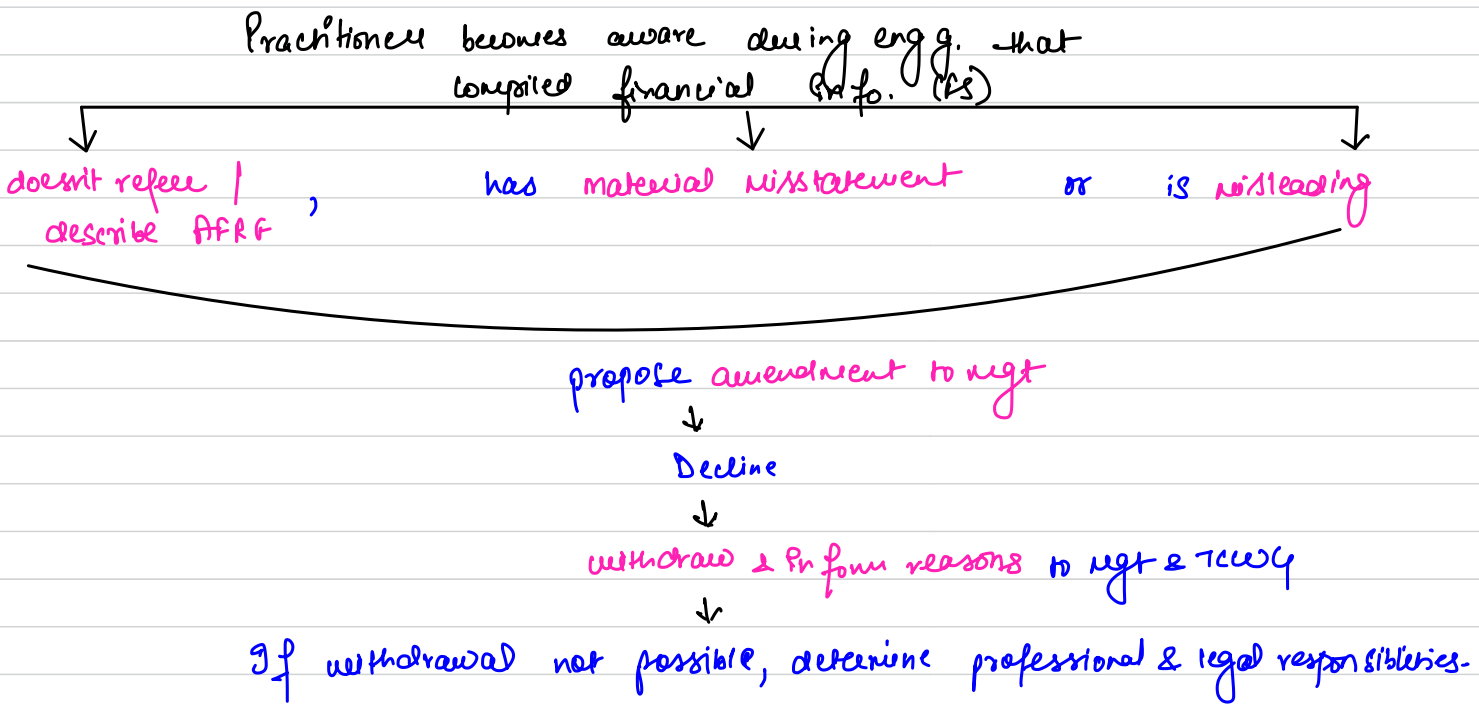 Practitioner becomes aware during engg. that
compiled financial info. (FS)
doesn't refer / , has material misstatement or is misleading
describe AFRF
propose amendment to mgt
Decline
withdraw & inform reasons to mgt & TCWG
If withdrawal not possible, determine professional & legal responsibleties.